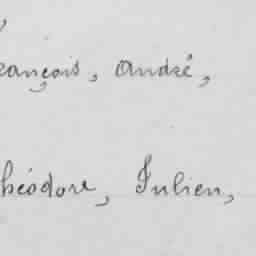 rançois, André,
héodore, Julien,